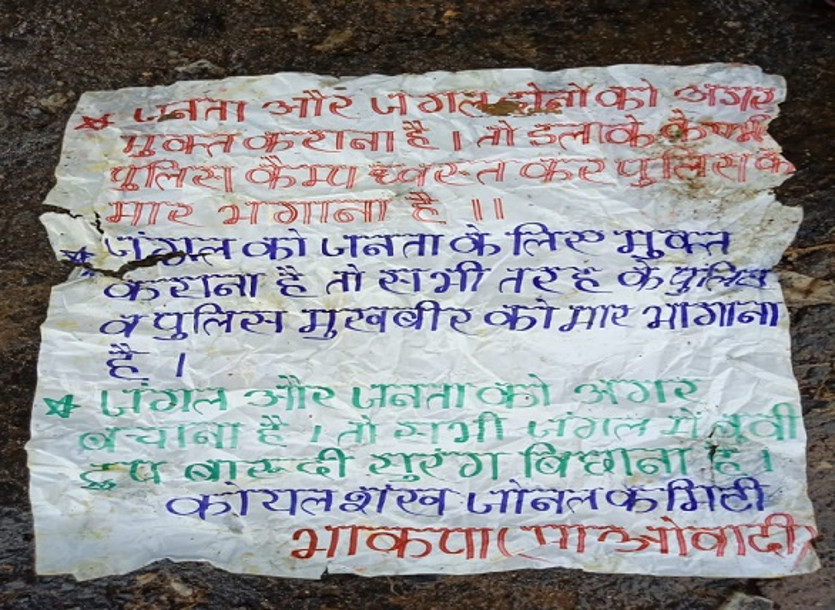 ★ जनता और जंगल दोनों को अगर
मुक्त कराना है । तो इलाके के सभी
पुलिस कैम्प ध्वस्त कर पुलिस के
मार भगाना है ॥
★ जंगल को जनता के लिए मुक्त
कराना है तो सभी तरह के पुलिस
व पुलिस मुखबीर को मार भागाना
है ।
★ जंगल और जनता को अगर
बचाना है । तो सभी जंगल में बुबी
ट्रुप बारूदी सुरंग बिछाना है ।
कोयल शंख जोनल कमिटी
भाकपा (माओवादी)